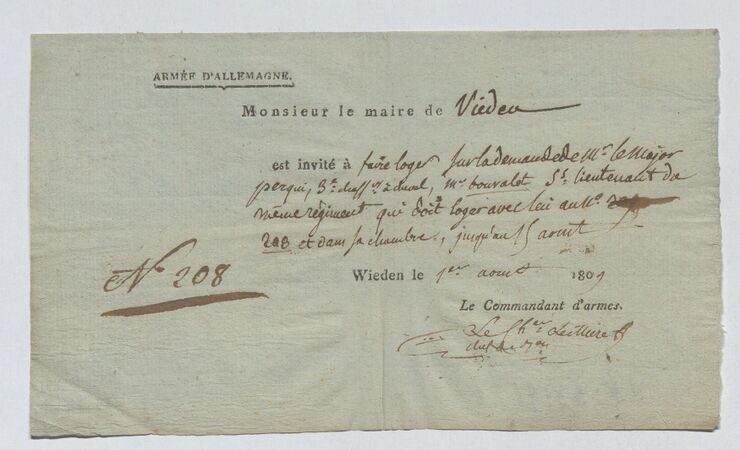 ARMÉE D'ALLEMAGNE.
Monsieur le maire de Vieden
est invité à faire loger sur la demande de Mr. le Major
perqui, 3e. chassrs. à cheval, Mr. bouralot Ss. lieutenant du
même régiment qui doit loger avec lui au No.
208 et dans sa chambre, jusqu'au 15 aoust
No 208
Wieden le 1er aoust 1809
Le Commandant d'armes.
Le Cher